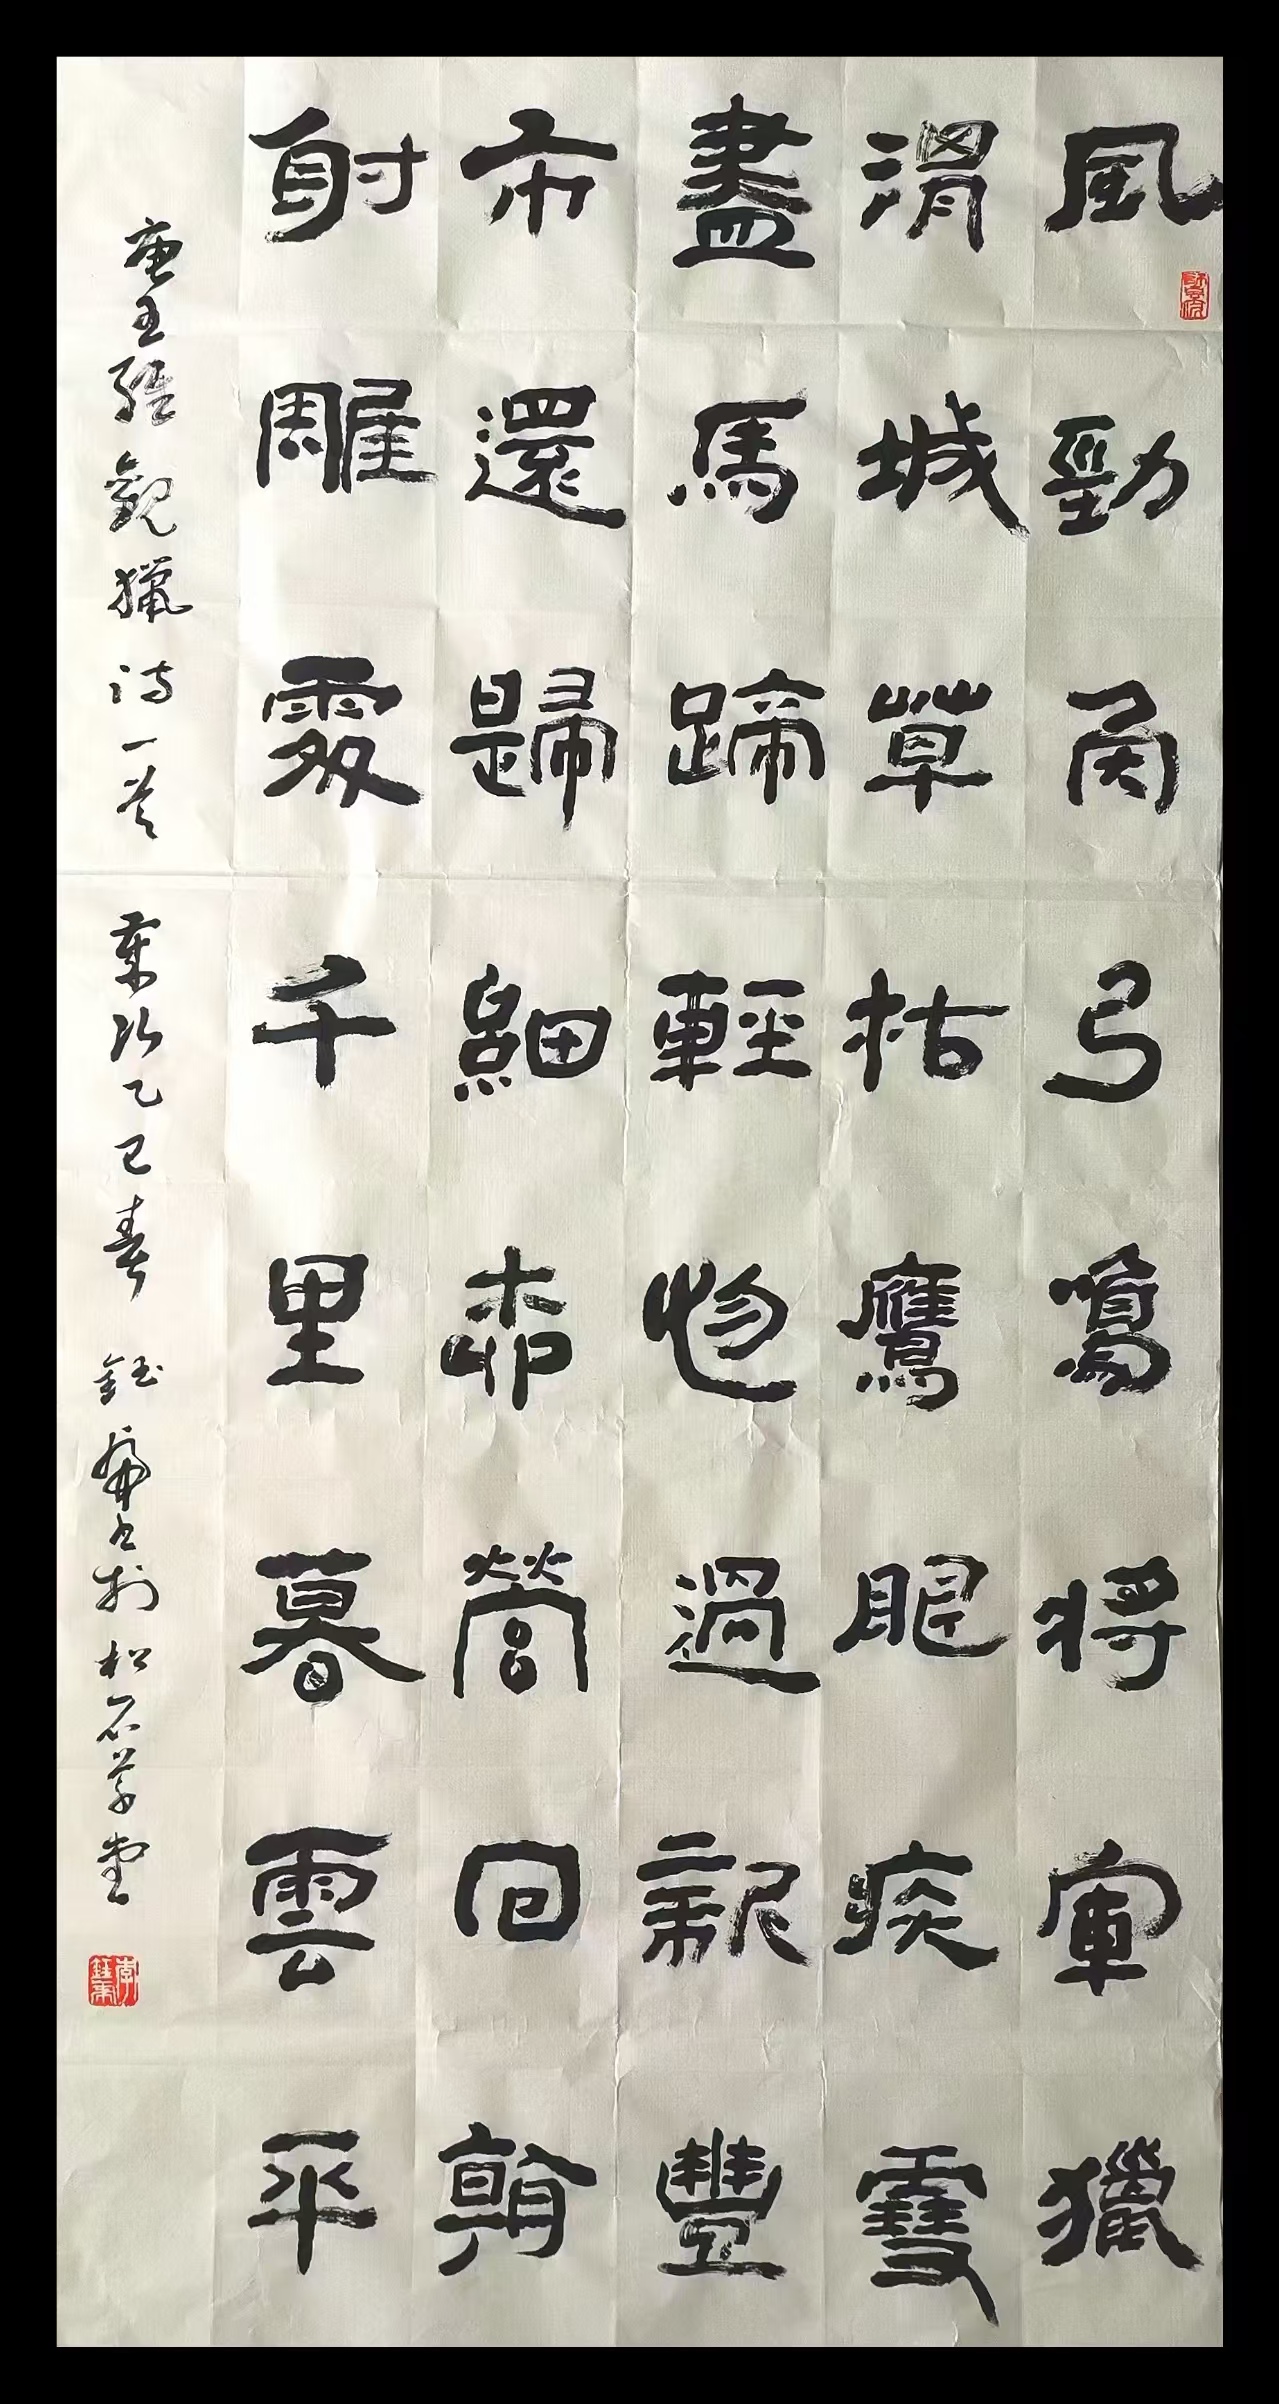 風勁角弓鳴將軍獵
渭城草枯鷹眼疾雪
盡馬蹄輕忽過新豐
市還歸細柳營回看
射雕處千里暮雲平
唐王維觀獵詩一首 歲次乙巳春 鈺書於松石草堂